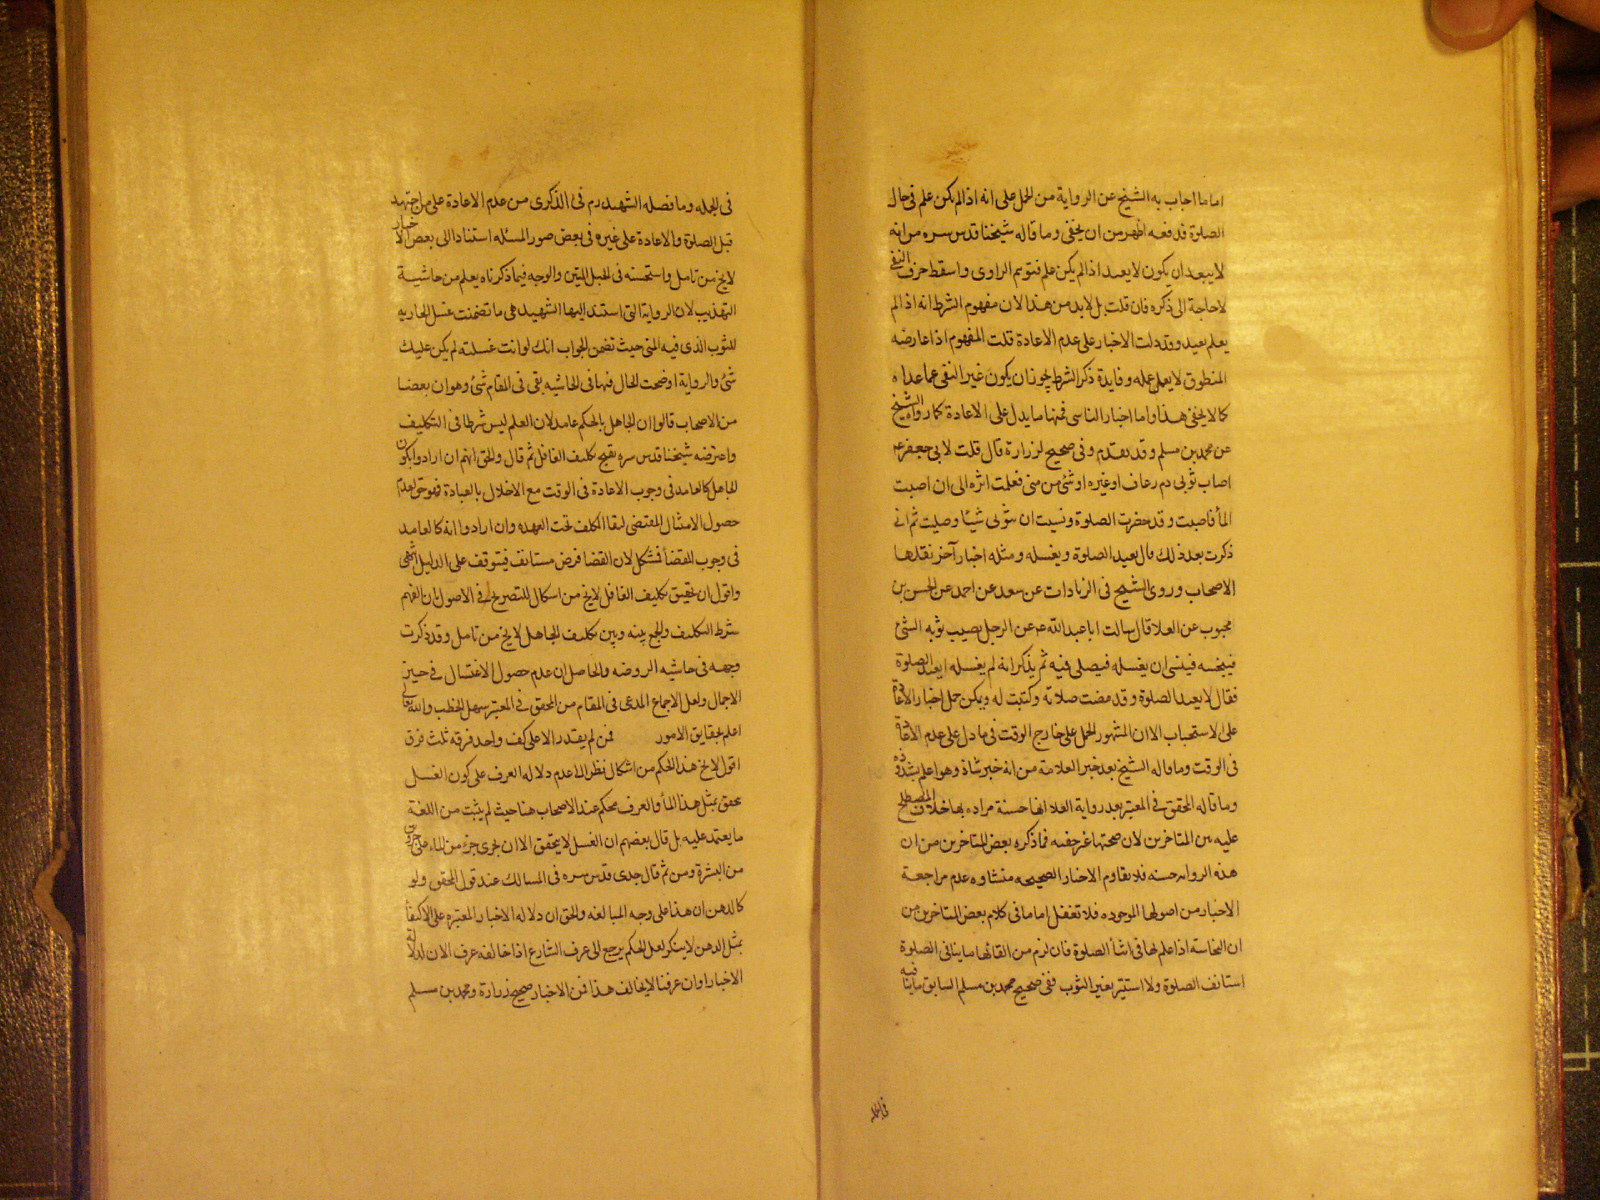 اما ما اجاب به الشيخ عن الرواية من الحمل على انه اذا لم يكن علم في حال
الصلوة فدفعه اظهر من ان يخفى وما قاله شيخنا قدس سره من انه
لا يبعد ان يكون لا يعيد اذا لم يكن علم فتوهم الراوى واسقط حرف النفى
لا حاجة الى ذكره فان قلت بل لا بد من هذا لان مفهوم الشرط انه اذا لم
يعلم يعيد وقد دلت الاخبار على عدم الاعادة قلت المفهوم اذا عارضه
المنطوق لا يعمل عمله وفايدة ذكر الشرط يجوز ان يكون غير النفى عما عداه
كما لا يخفى هذا واما اخبار الناسى فمنها ما يدل على الاعادة كما رواه الشيخ
عن محمد بن مسلم وقد تقدم وفى صحيح لزرارة قال قلت لابى جعفر ع
اصاب ثوبى دم رعاف او غيره او شئ من منى فعلمت اثره الى ان اصيب
الماء فاصبت وقد حضرت الصلوة ونسيت ان بثوبى شيئا وصليت ثم انى
ذكرت بعد ذلك قال يعيد الصلوة ويغسله ومثله اخبار آخر نقلها
الاصحاب وروى الشيخ فى الزيادات عن سعد عن احمد عن الحسن بن
محبوب عن العلا قال سالت ابا عبد الله ع عن الرجل يصيب ثوبه الشئ
فينجسه فينسى ان يغسله فيصلى فيه ثم يذكر انه لم يغسله ايعيد الصلوة
فقال لا يعيد الصلوة وقد مضت صلاته وكتبت له ويمكن حمل اخبار الاعادة
على الاستحباب الا ان المشهور الحمل على خارج الوقت فى ما دل على عدم الاعادة
فى الوقت وما قاله الشيخ بعد خبر العلا من انه خبر شاذ وهو اعلم بشذوذه
وما قاله المحقق في المعتبر بعد رواية العلا انها حسنة مراده بها خلاف المصطلح
عليه بين المتاخرين لان صحتها غير خفيه فما ذكره بعض المتاخرين من ان
هذه الروايه حسنه فلا تقاوم الاخبار الصحيحه منشاوه عدم مراجعة
الاخبار من اصولها الموجوده فلا تغفل اما ما فى كلام بعض المتاخرين من
ان النجاسته اذا علم بها فى اثنأ الصلوة فان لزم من القائها ما ينافى الصلوة
استانف الصلوة ولا استتر بغير الثوب ففى صحيح محمد بن مسلم السابق ما ينافيه
فى الجمله
فى الجمله وما فصله الشهيد ره فى الذكرى من عدم الاعادة على من اجتهد
قبل الصلوة والاعادة على غيره فى بعض صور المسئله استنادا الى بعض الاخبار
لا يخ من تامل واستحسنه فى الحبل المتين والوجه فيما ذكرناه يعلم من حاشية
التهذيب لان الرواية التى استند اليها الشهيد هى ما تضمنت غسل الجاريه
للثوب الذى فيه المنى حيث تضمن الجواب انك لو انت غسلته لم يكن عليك
شئ والرواية اوضحت الحال فيها فى الحاشيه بقى فى المقام شئ وهو ان بعضا
من الاصحاب قالوا ان الجاهل بالحكم عامد لان العلم ليس شرطا فى التكليف
واعترضه شيخنا قدس سره بقبح تكليف الغافل ثم قال والحق انهم ان ارادوا بكون
الجاهل كالعامد فى وجوب الاعادة فى الوقت مع الاخلال بالعبادة فهو حق لعدم
حصول الامتثال المقتضى لبقا المكلف تحت العهده وان ارادوا انه كالعامد
فى وجوب القضأ فمشكل لان القضا فرض مستانف فيتوقف على الدليل انتهى
واقول ان تحقيق تكليف الغافل لا يخ من اشكال للتصريح في الاصول بان الفهم
شرط التكليف والجمع بينه وبين تكليف الجاهل لا يخ من تامل وقد ذكرت
وجهه فى حاشيه الروضه والحاصل ان عدم حصول الاغتسال في حيز
الاجمال ولعل الاجماع المدعى فى المقام من المحقق في المعتبر سهل الخطب والله تعالى
اعلم بحقايق الامور فمن لم يقدر الا على كف واحد فرقه ثلث فرق
اقول لا يخ هذا الحكم من اشكال نظر الى عدم دلاله العرف على كون الغسل
تحقق بمثل هذا المأ والعرف محكم عند الاصحاب هنا حيث لم يثبت من اللغة
ما يعتمد عليه بل قال بعضهم ان الغسل لا يتحقق الا ان يجرى جزء من الماء على جزئين
من البشرة ومن ثم قال جدى قدس سره فى المسالك عند قول المحقق ولو
كالدهن ان هذا على وجه المبالغه والحق ان دلاله الاخبار المعتبره على الاكتفأ
بمثل الدهن لا ينكر لعل الحكم يرجع الى عرف الشارع اذا خالفه عرف الان لدلالة
الاخبار او ان عرفنا لا يخالف هذا فمن الاخبار صحيح زرارة ومحمد بن مسلم